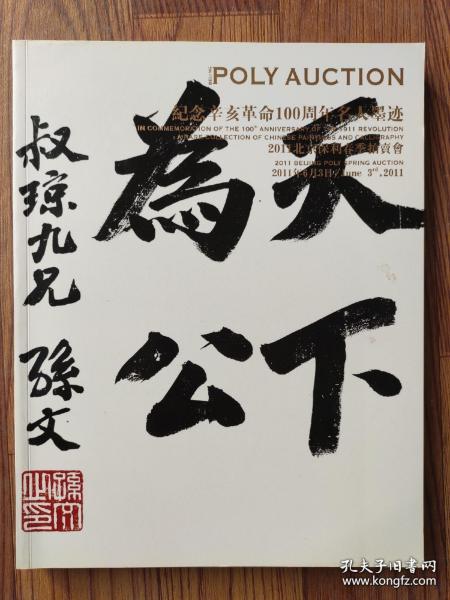 POLY AUCTION
紀念辛亥革命100周年名人墨迹
IN COMMEMORATION OF THE 100th ANNIVERSARY OF THE 1911 REVOLUTION
COLLECTION OF CHINESE PAINTINGS AND CALLIGRAPHY
2011北京保利春季拍賣會
2011 BEIJING POLY SPRING AUCTION
2011年6月3日/June 3rd,2011
天下
為公
叔琼九兄 孫文
孫文之印
孔夫子旧书网
www.kongfz.com